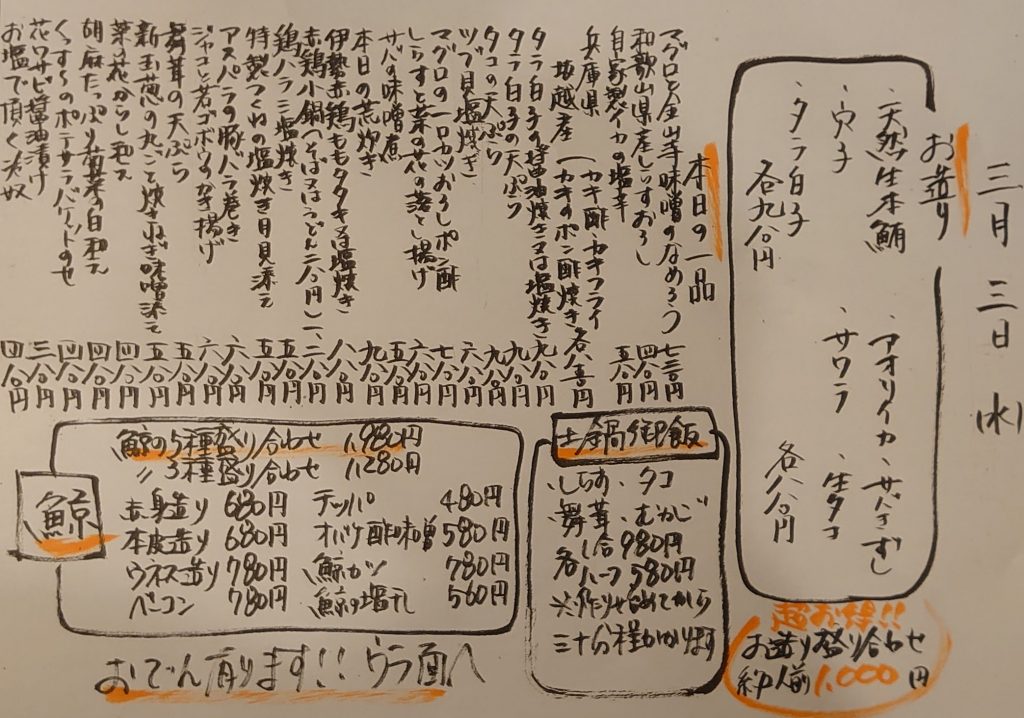 三月三日(水)
お造り
・天然生本鮪 ・アオリイカ ・サバきずし
・穴子 ・サワラ ・生タコ
・タラ白子
各九八〇円 各八八〇円
超お得!!
お造り盛り合わせ
約一人前1,000円
本日の一品
マグロと金山寺味噌のなめろう
和歌山県産しらすおろし 四八〇円
自家製イカの塩辛 五八〇円
兵庫県坂越産(カキ酢 カキフライ
(カキのポン酢焼き
タラ白子の醤油焼き又は塩焼き 九八〇円
タラ白子の天ぷら 九八〇円
タコの天ぷら 九八〇円
ツブ貝塩焼き 六八〇円
マグロの一口カツおろしポン酢 七八〇円
しらすと菜の花の落とし揚げ 六八〇円
サバの味噌煮 五八〇円
本日の荒炊き 九八〇円
伊勢赤鶏ももタタキ又は塩焼き 八八〇円
赤鶏小鍋(そば又はうどん二八〇円) 一、二八〇円
鶏ハラミ塩焼き 五八〇円
特製つくねの塩焼き月見添え 五八〇円
アスパラの豚バラ巻き 六八〇円
ジャコと若ゴボウのかき揚げ 六八〇円
舞茸の天ぷら 五八〇円
新玉葱の丸ごと炊きねぎ味噌添え 五八〇円
菜の花からし和え 四八〇円
胡麻たっぷり菊菜の白和え 四八〇円
ポテサラバゲットのせ 四八〇円
花ワサビ醤油漬け 三八〇円
お塩で頂く冷奴 四八〇円
土鍋御飯
・しらす ・タコ
・舞茸 ・むかご
各一合980円
ハーフ580円
※作り始めてから
三十分程かかります
鯨
鯨の5種盛り合わせ 1,980円
〃3種盛り合わせ 1,280円
赤身造り 680円 テッパ 480円
本皮造り 680円 オバケ酢味噌 580円
ウネス造り 780円 鯨カツ 780円
ベーコン 780円 鯨の塩干し 560円
おでん有ります!!ウラ面へ